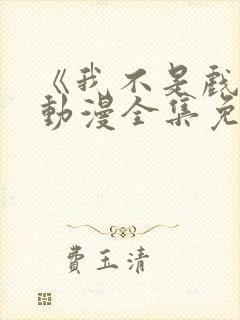 《我不是戲
動漫全集免
費玉清